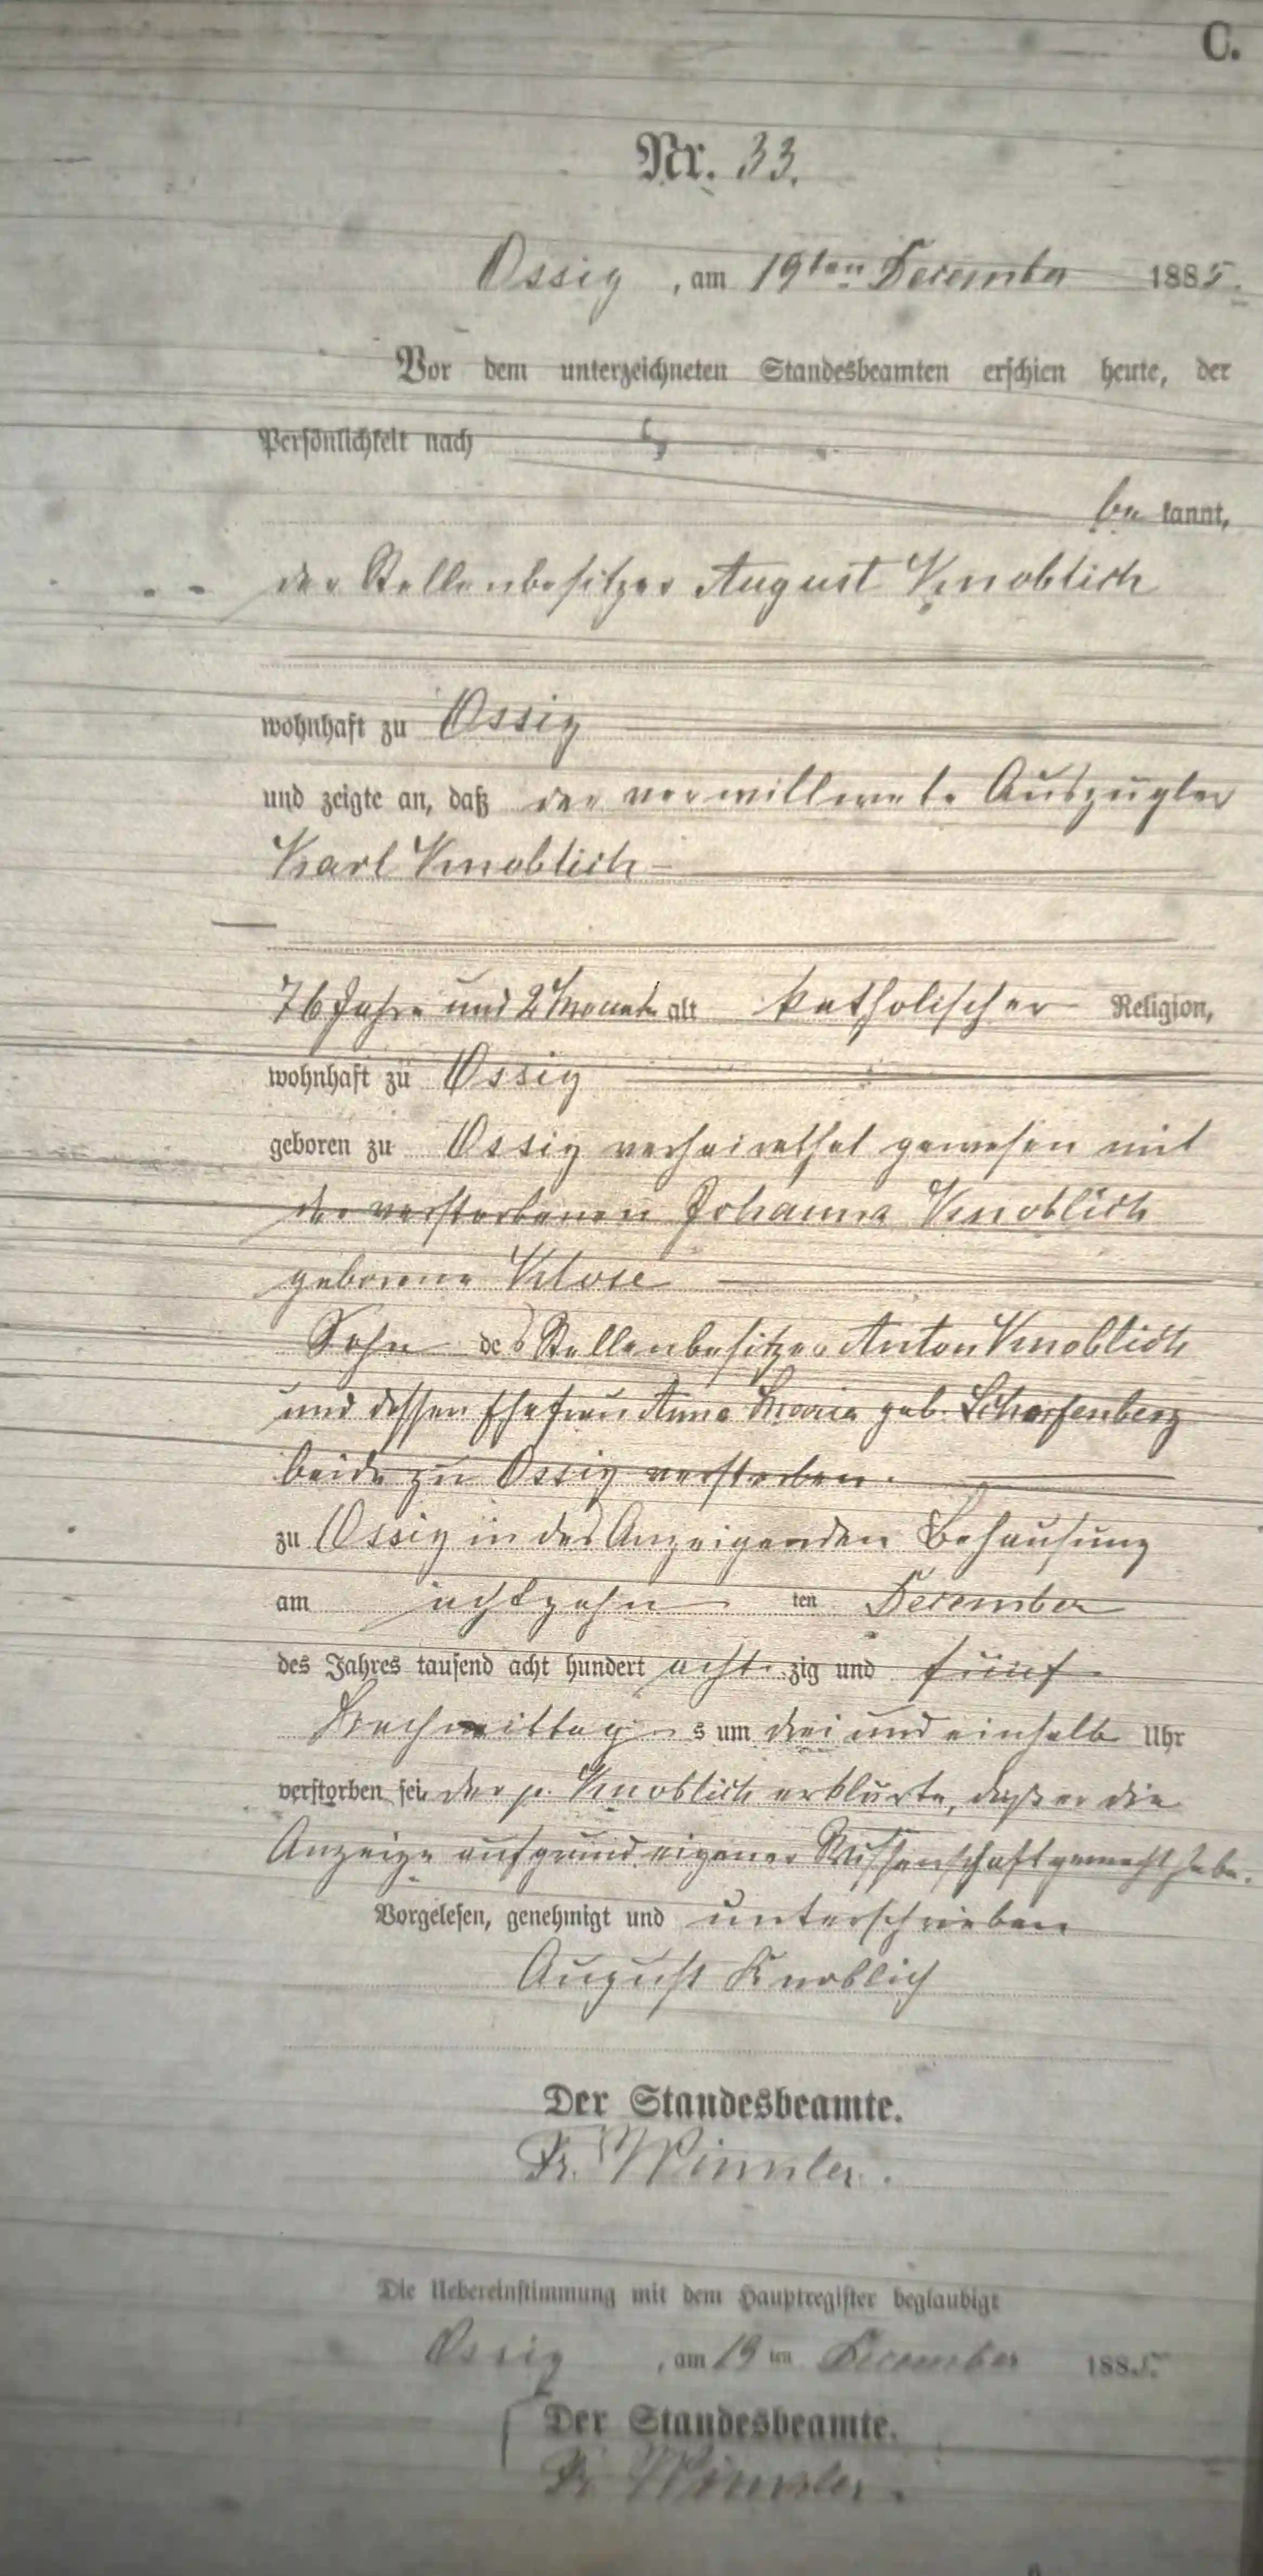 C.
Nr. 33.
Ossig, am 19ten December 1885.
Vor dem unterzeichneten Standesbeamten erschien heute, der
Persönlichkeit nach
be kannt,
der Stellenbesitzer August Knoblich
wohnhaft zu Ossig
und zeigte an, daß der verwittwete Auszügler
Karl Knoblich
76 Jahre und 2 Monate alt katholischer Religion,
wohnhaft zu Ossig
geboren zu Ossig verheirathet gewesen mit
der verstorbenen Johanna Knoblich
geborene Klose
Sohn des Stellenbesitzer Anton Knoblich
und dessen Ehefrau Anna Maria geb. Scharfenberg
beide zu Ossig verstorben.
zu Ossig in des Anzeigenden Behausung
am achtzehn ten December
des Jahres tausend acht hundert acht zig und fünf
Nachmittag s um drei und einhalb Uhr
verstorben sei, der p. Knoblich erklärte, daß er die
Anzeige aufgrund eigener Wissenschaft gemacht habe.
Vorgelesen, genehmigt und unterschrieben
August Knoblich
Der Standesbeamte.
Fr. Winkler.
Die Uebereinstimmung mit dem Hauptregister beglaubigt
Ossig, am 19 ten December 1885.
Der Standesbeamte.
Fr. Winkler.